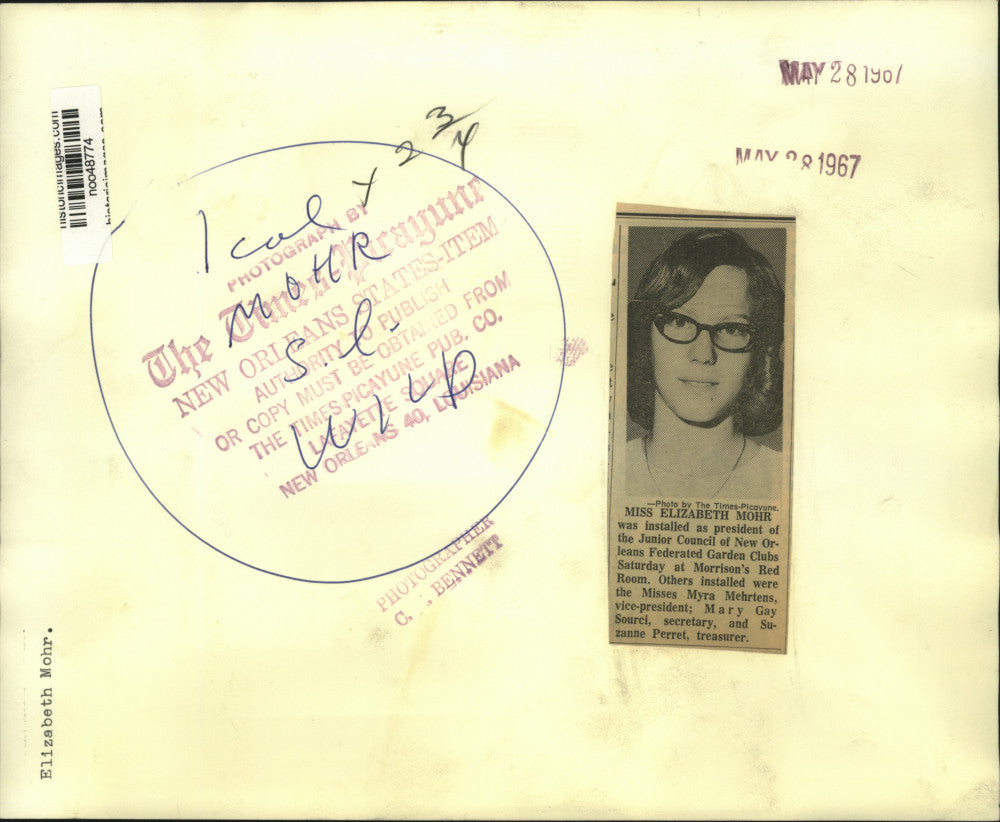 MAY 28 1967
MAY 28 1967
historicimages.com
noo48774
historicimages.com
1 col x 2 3/4
MOHR
S.l.
PHOTOGRAPH BY
The Times-Picayune
NEW ORLEANS STATES-ITEM
AUTHORITY TO PUBLISH
OR COPY MUST BE OBTAINED FROM
THE TIMES-PICAYUNE PUB. CO.
LAFAYETTE SQUARE
NEW ORLEANS 40, LOUISIANA
PHOTOGRAPHER
C. BENNETT
—Photo by The Times-Picayune.
MISS ELIZABETH MOHR
was installed as president of
the Junior Council of New Or-
leans Federated Garden Clubs
Saturday at Morrison's Red
Room. Others installed were
the Misses Myra Mehrtens,
vice-president; Mary Gay
Sourci, secretary, and Su-
zanne Perret, treasurer.
Elizabeth Mohr.